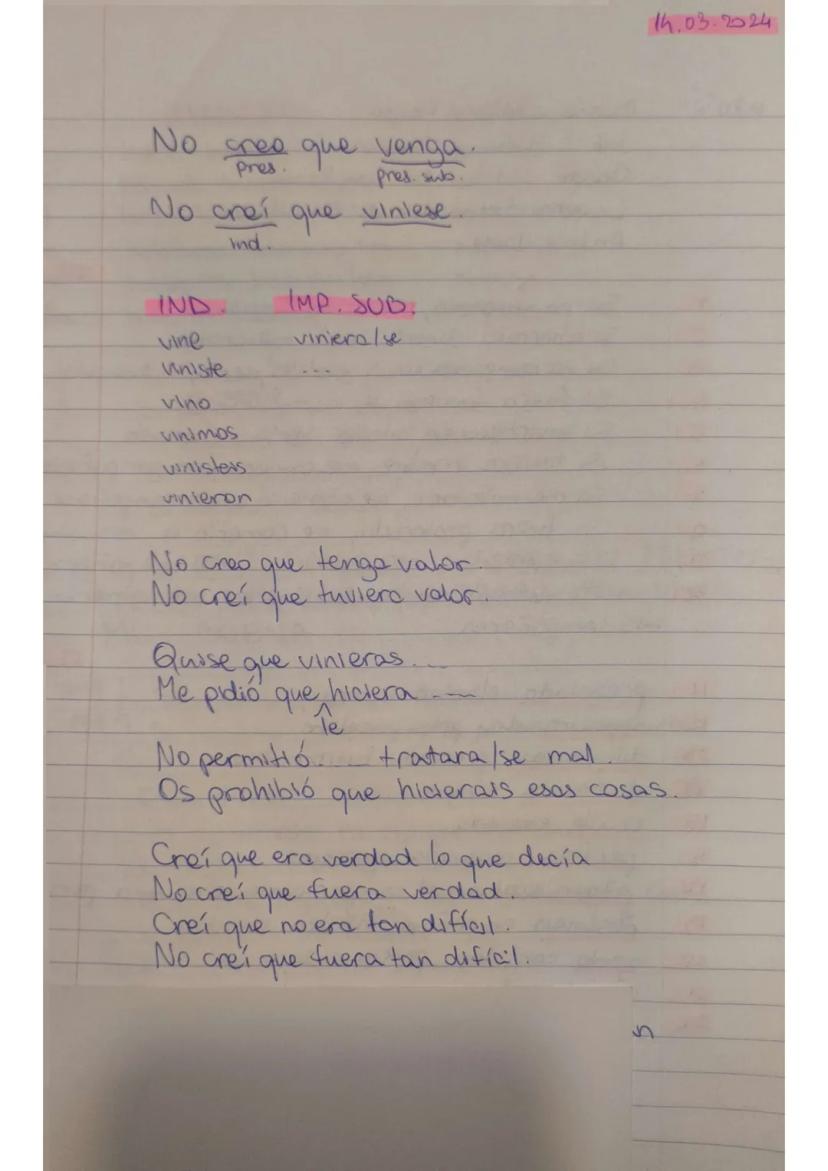 14.03.2024
No creo que venga.
pres. pres. sub.
No creí que viniese.
ind.
IND. IMP. SUB.
vine viniera/se
viniste ...
vino
vinimos
vinisteis
vinieron
No creo que tenga valor.
No creí que tuviera valor.
Quise que vinieras...
Me pidió que hiciera ....
le
No permitió .... tratara/se mal.
Os prohibió que hicierais esas cosas.
Creí que era verdad lo que decía
No creí que fuera verdad.
Creí que no era tan difícil.
No creí que fuera tan difícil.
n